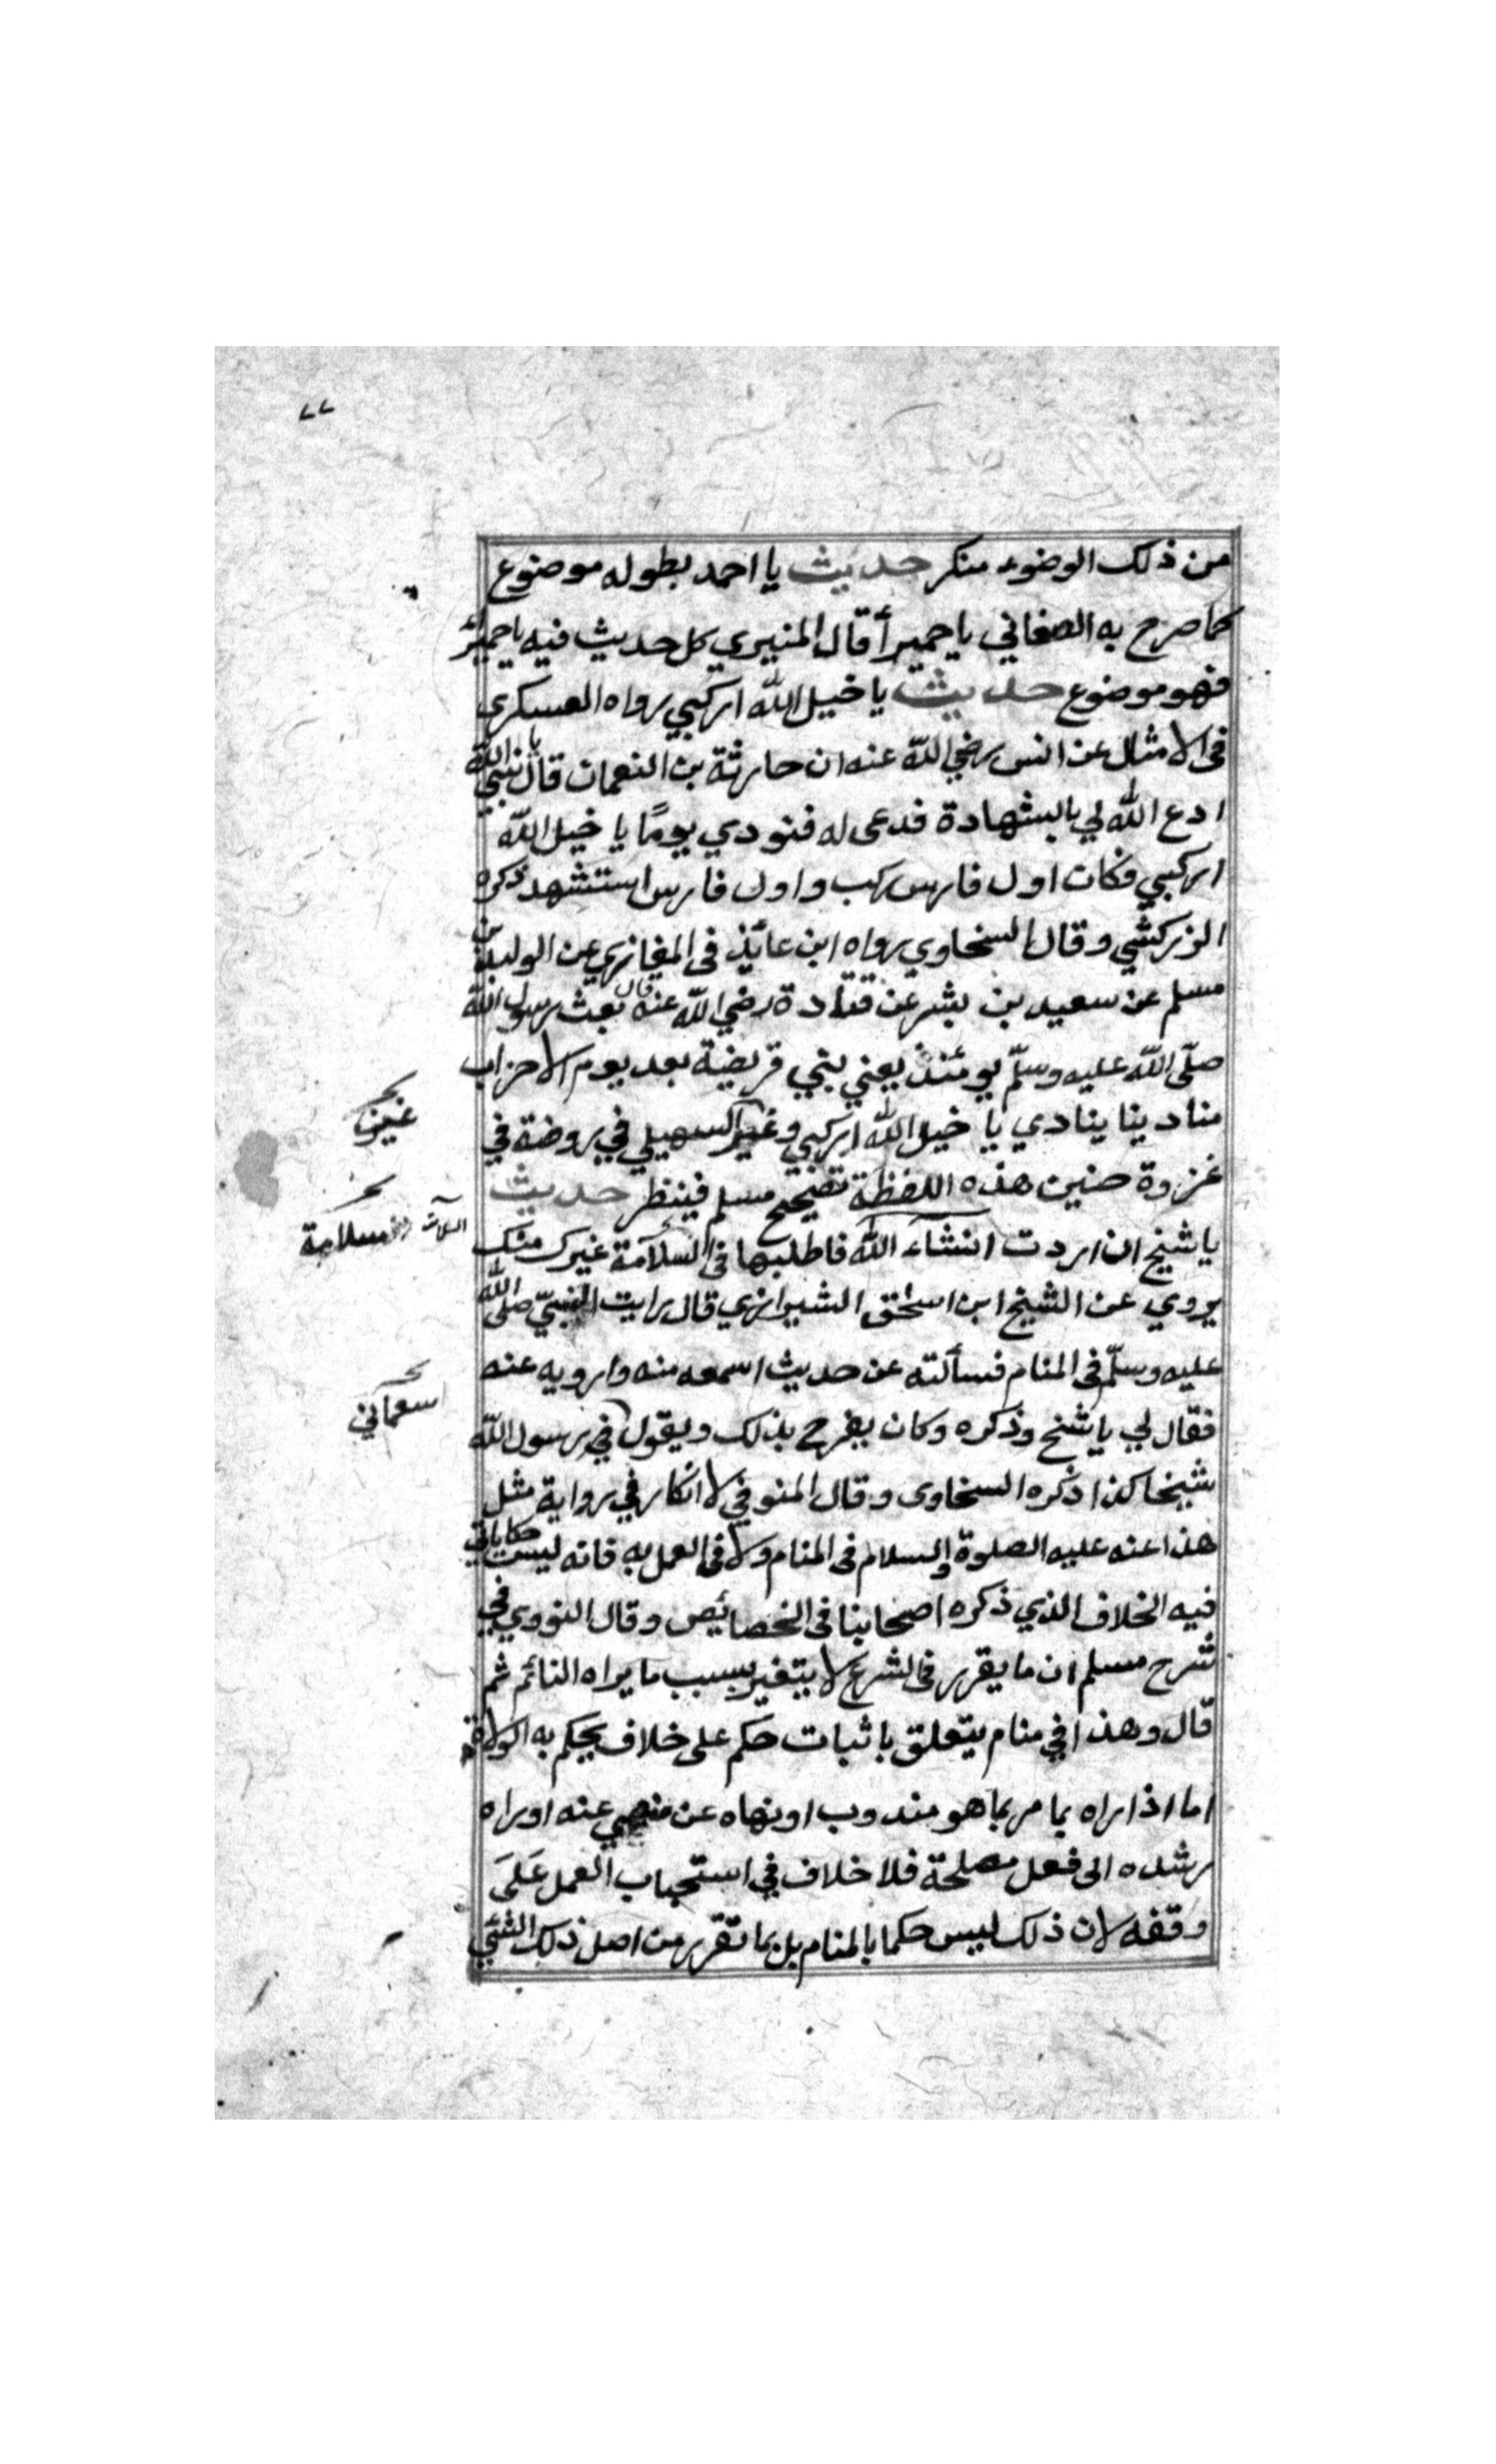 ٧٧
من ذلك الوضوء منكر حديث يا احمد بطوله موضوع
كما صرح به الصغاني يا حميرأ قال المنيري كل حديث فيه يا حميرأ
فهو موضوع حديث يا خيل الله اركبي رواه العسكري
فى الامثال عن انس رضي الله عنه ان حارثة بن النعمان قال يا نبي الله
ادع الله لي بالشهادة فدعى له فنودي يومًا يا خيل الله
اركبي فكان اول فارس ركب واول فارس استشهد ذكره
الزركشي وقال السخاوي رواه ابن عائذ فى المغازي عن الوليد بن
مسلم عن سعيد بن بشر عن قتادة رضي الله عنه قال بعث رسول الله
صلّى الله عليه وسلّم يومئذ يعني بني قريضة بعد يوم الاحزاب
مناد ينا ينادي يا خيل الله اركبي وغير السهيلي في روضة في
غزوة حنين هذه اللفظة تصحيح مسلم فينظر حديث
يا شيخ ان اردت انشاء الله فاطلبها فى السلامة غيرك منك
يروي عن الشيخ ابن اسحق الشيرازي قال رايت النبيّ صلى الله
عليه وسلّم فى المنام فسألته عن حديث اسمعه منه وارويه عنه
فقال لي يا شيخ وذكره وكان يفرح بذلك ويقول في رسول الله
شيخا كذا ذكره السخاوى وقال المنوفي لا انكار في رواية مثل
هذا عنه عليه الصلوة والسلام فى المنام ولا فى العمل به فانه ليست حكاياتي
فيه الخلاف الذي ذكره اصحابنا فى الخصائص وقال النووي في
شرح مسلم ان ما يقرر فى الشرع لا يتغير بسبب ما يراه النائم ثم
قال وهذا في منام يتعلق باثبات حكم على خلاف يحكم به الولاة
اما اذا راه يامر بما هو مندوب او نهاه عن منهي عنه او راه
رشده الى فعل مصلحة فلا خلاف في استحباب العمل عَلىَ
وقفه لان ذلك ليس حكما بالمنام بل بما تقرر من اصل ذلك الشئي
سلامة
سمعاني